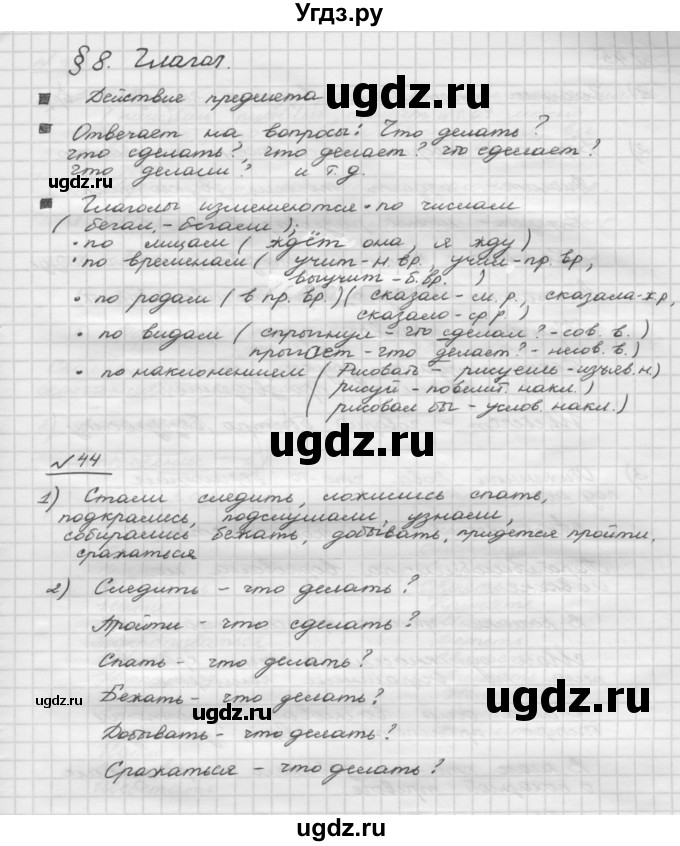 УГДЗ.РУ
§ 8. Глагол.
Действие предмета
ugdz.ru
Отвечает на вопросы: Что делать?
что сделать?, что делает? что сделает?
что делали? и т.д.
ugdz.ru
ugdz.ru
Глаголы изменяются • по числам
(бегал, - бегали);
• по лицам (ждёт она, я жду)
• по временам (учит - н.вр., учил - пр.вр,
выучит - б.вр.)
• по родам (в пр. вр.) (сказал - м.р., сказала - ж.р,
сказало - ср.р.)
• по видам (спрыгнул - что сделал? - сов. в.)
прыгает - что делает? - несов. в.)
• по наклонениям (Рисовать - рисуешь - изъяв.н.)
(рисуй - повелит. накл.)
(рисовал бы - услов. накл.)
ugdz.ru
№ 44
1) Стали следить, ложились спать,
подкрались, подслушали, узнали,
собирались бежать, добывать, придется пройти,
сражаться
ugdz.ru
2) Следить - что делать?
Пройти - что сделать?
Спать - что делать?
Бежать - что делать?
ugdz.ru
ugdz.ru
ugdz.ru
Добывать - что делать?
Сражаться - что делать?
ugdz.ru